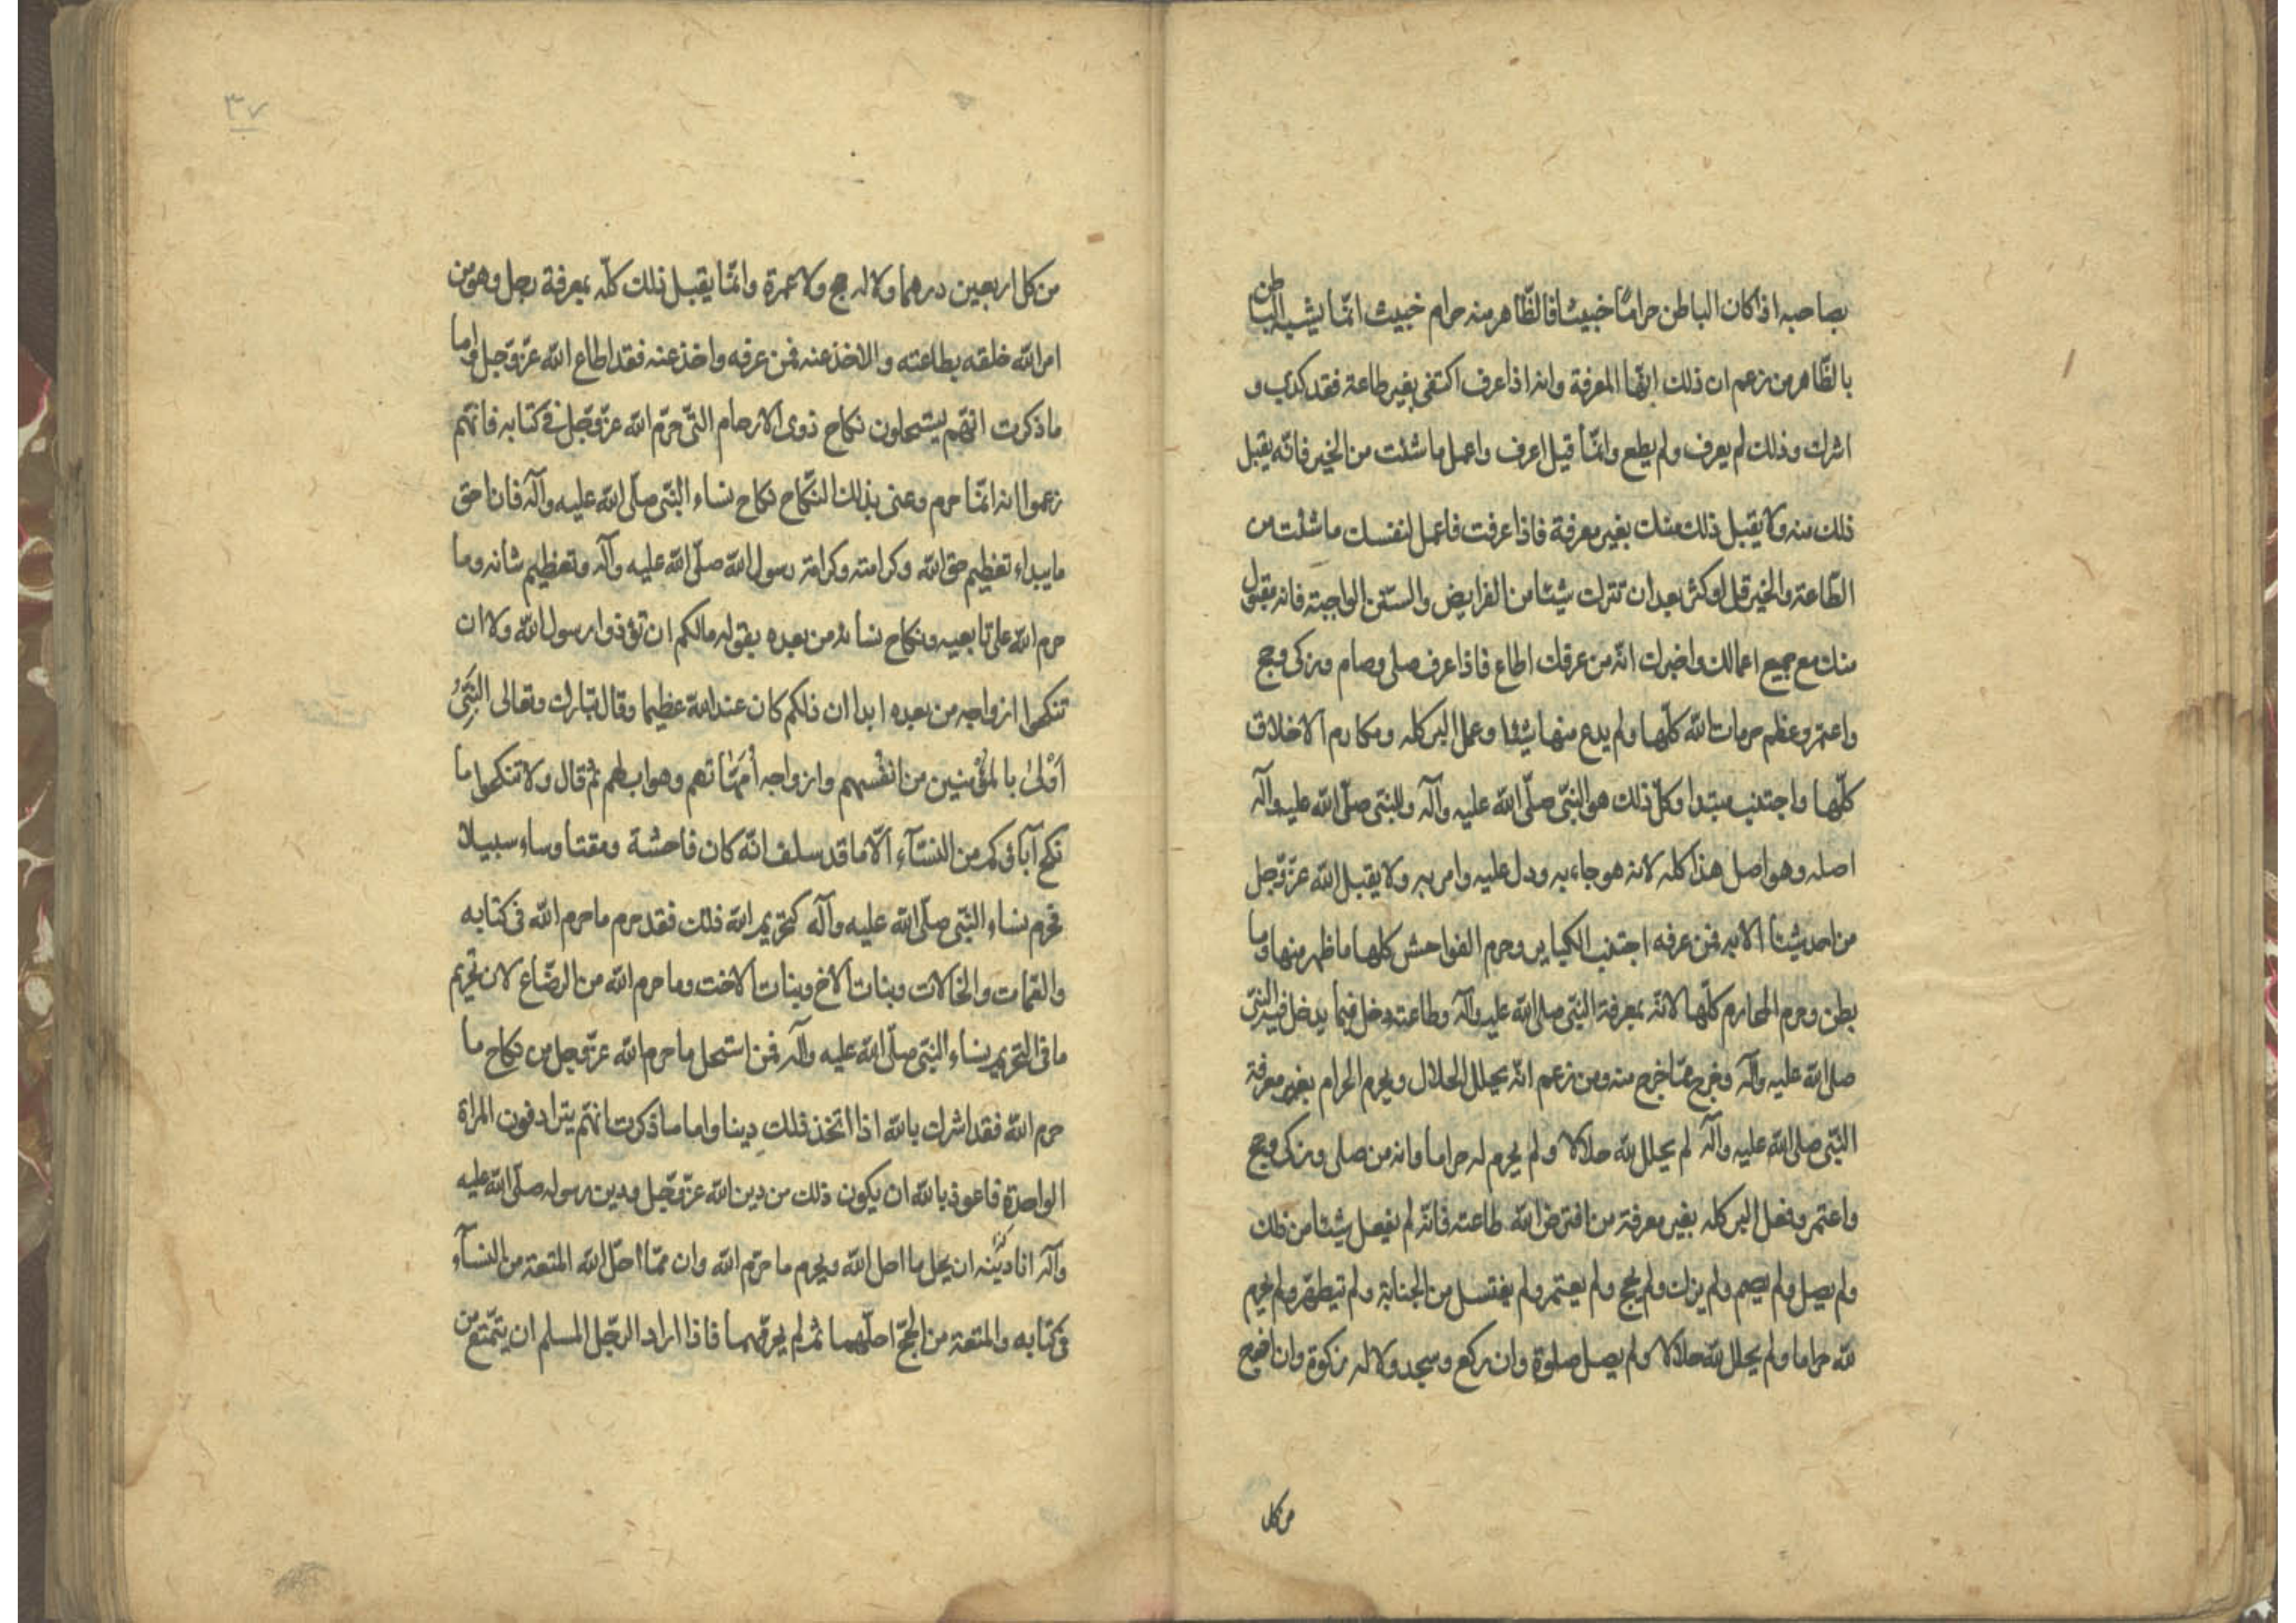 بصاحبه اذا كان الباطن حرامًا خبيثا فالظّاهر منه حرام خبيث انّما يشبه الباطن
بالظّاهر من زعم ان ذلك انّها المعرفة وانه اذا عرف اكتفى بغير طاعة فقد كذب و
اشرك وذلك لم يعرف ولم يطع وانّما قيل اعرف واعمل ما شئت من الخير فانّه يقبل
ذلك منه ولا يقبل ذلك منك بغير معرفة فاذا عرفت فاعمل لنفسك ما شئت من
الطّاعة والخير قل او كثر بعد ان تترك شيئا من الفرايض والسّنن الواجبة فانه مقبول
منك مع جميع اعمالك واخبرك انّه من عرفك اطاع فاذا عرف صلى وصام وزكى وحج
واعتمر وعظم حرمات الله كلّها ولم يدع منها شيئا وعمل البر كله ومكارم الاخلاق
كلّها واجتنب مبتدا وكلّ ذلك هو النّبى صلّى الله عليه وآله والنّبى صلّى الله عليه وآله
اصله وهو اصل هذا كله لانه هو جاء به ودل عليه وامر به ولا يقبل الله عزّوجل
من احد شيئا الا به فمن عرفه اجتنب الكباير وحرم الفواحش كلها ما ظهر منها وما
بطن وحرم المحارم كلّها لانّه بمعرفة النّبى صلى الله عليه وآله وطاعته دخل فيما يدخل فيه النّبى
صلى الله عليه وآله وخرج ممّا خرج منه ومن زعم انّه يحلل الحلال ويحرم الحرام بغير معرفة
النّبى صلى الله عليه وآله لم يحلل لله حلالا ولم يحرم له حراما وانه من صلى وزكى وحج
واعتمر وفعل البر كله بغير معرفة من افترض الله طاعته فانّه لم يفعل شيئا من ذلك
ولم يصل ولم يصم ولم يزك ولم يحج ولم يعتمر ولم يغتسل من الجنابة ولم يتطهّر ولم يحرم
لله حراما ولم يحلل لله حلالا ولم يصل صلوة وان ركع وسجد ولا له زكوة وان اخرج
من كل
٣٧
من كل اربعين درهما ولا له حج ولا عمرة وانّما يقبل ذلك كلّه بمعرفة رجل وهو من
امر الله خلقه بطاعته والاخذ عنه فمن عرفه واخذ عنه فقد اطاع الله عزّوجل واما
ما ذكرت انّهم يستحلون نكاح ذوى الارحام التّى حرّم الله عزّوجلّ فى كتابه فانّهم
زعموا انه انّما حرم وعنى بذلك النّكاح نكاح نساء النّبى صلّى الله عليه وآله فان احق
ما يبداء تعظيم حق الله وكرامته وكرامة رسول الله صلّى الله عليه وآله وتعظيم شانه وما
حرم الله على تابعيه ونكاح نسائه من بعده بقوله مالكم ان تؤذوا رسول الله ولا ان
تنكحوا ازواجه من بعده ابدا ان ذلكم كان عند الله عظيما وقال تبارك وتعالى النَّبِىُّ
اَوْلىٰ بالمؤمنين من انفُسهم وازواجه اُمّهَاتهم وهو اب لهم ثم قال ولا تنكحوا ما
نكح آباؤكم من النسّآء الّا ما قد سلف انّه كان فاحشة ومقتا وساء سبيلا
فحرم نساء النّبى صلّى الله عليه وآله كتحريم الله ذلك فقد حرم ما حرم الله فى كتابه
والعّمات والخالات وبنات الاخ وبنات الاخت وما حرم الله من الرضّاع لان تحريم
ما فى التحريم نساء النبّى صلّى الله عليه وآله فمن استحل ما حرم الله عزّوجل من نكاح ما
حرم الله فقد اشرك بالله اذا اتخذ ذلك دينا واما ما ذكرت انّهم يترادفون المراة
الواحدة فاعوذ بالله ان يكون ذلك من دين الله عزّوجّل ودين رسوله صلّى الله عليه
وآله انا دينه ان يحل ما احل الله ويحرم ما حرّم الله وان ممّا احلّ الله المتعة من النسآء
فى كتابه والمتعة من الحجّ احلّهما ثم لم يحرّمهما فاذا اراد الرجّل المسلم ان يتمّتع من